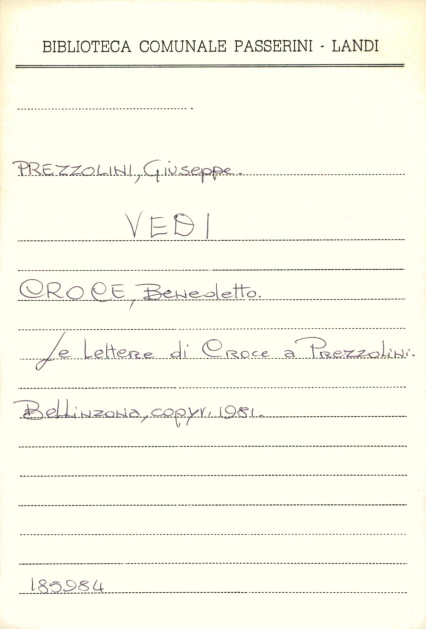 BIBLIOTECA COMUNALE PASSERINI - LANDI
PREZZOLINI, Giuseppe.
VEDI
CROCE, Benedetto.
Le Lettere di Croce a Prezzolini.
Bellinzona, copyr. 1981.
185984